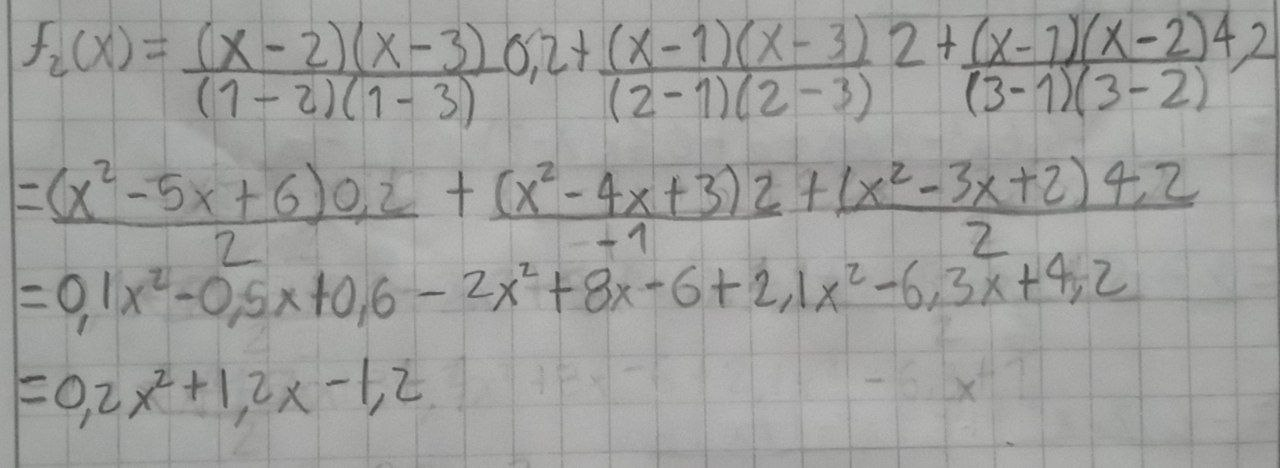 f₂(x) = (x-2)(x-3)/(1-2)(1-3) 0,2 + (x-1)(x-3)/(2-1)(2-3) 2 + (x-1)(x-2)/(3-1)(3-2) 4,2
= (x²-5x+6)0,2/2 + (x²-4x+3)2/-1 + (x²-3x+2)4,2/2
= 0,1x²-0,5x+0,6-2x²+8x-6+2,1x²-6,3x+4,2
= 0,2x²+1,2x-1,2